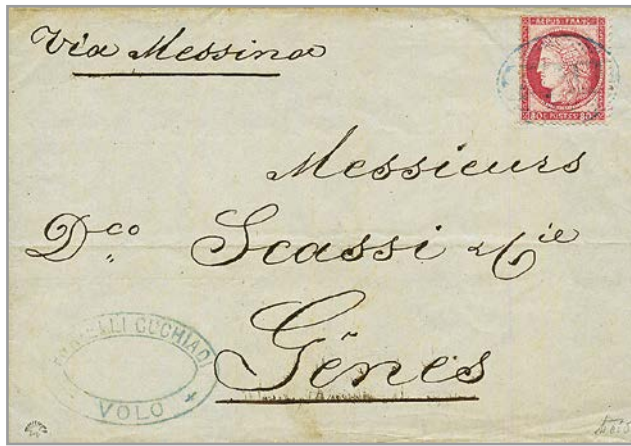 Via Messina
REPUB. FRANC.
80 C. POSTES 80
Messieurs
Dco Scassi & Cie
Gênes
FRATELLI CUCHIADI
VOLO